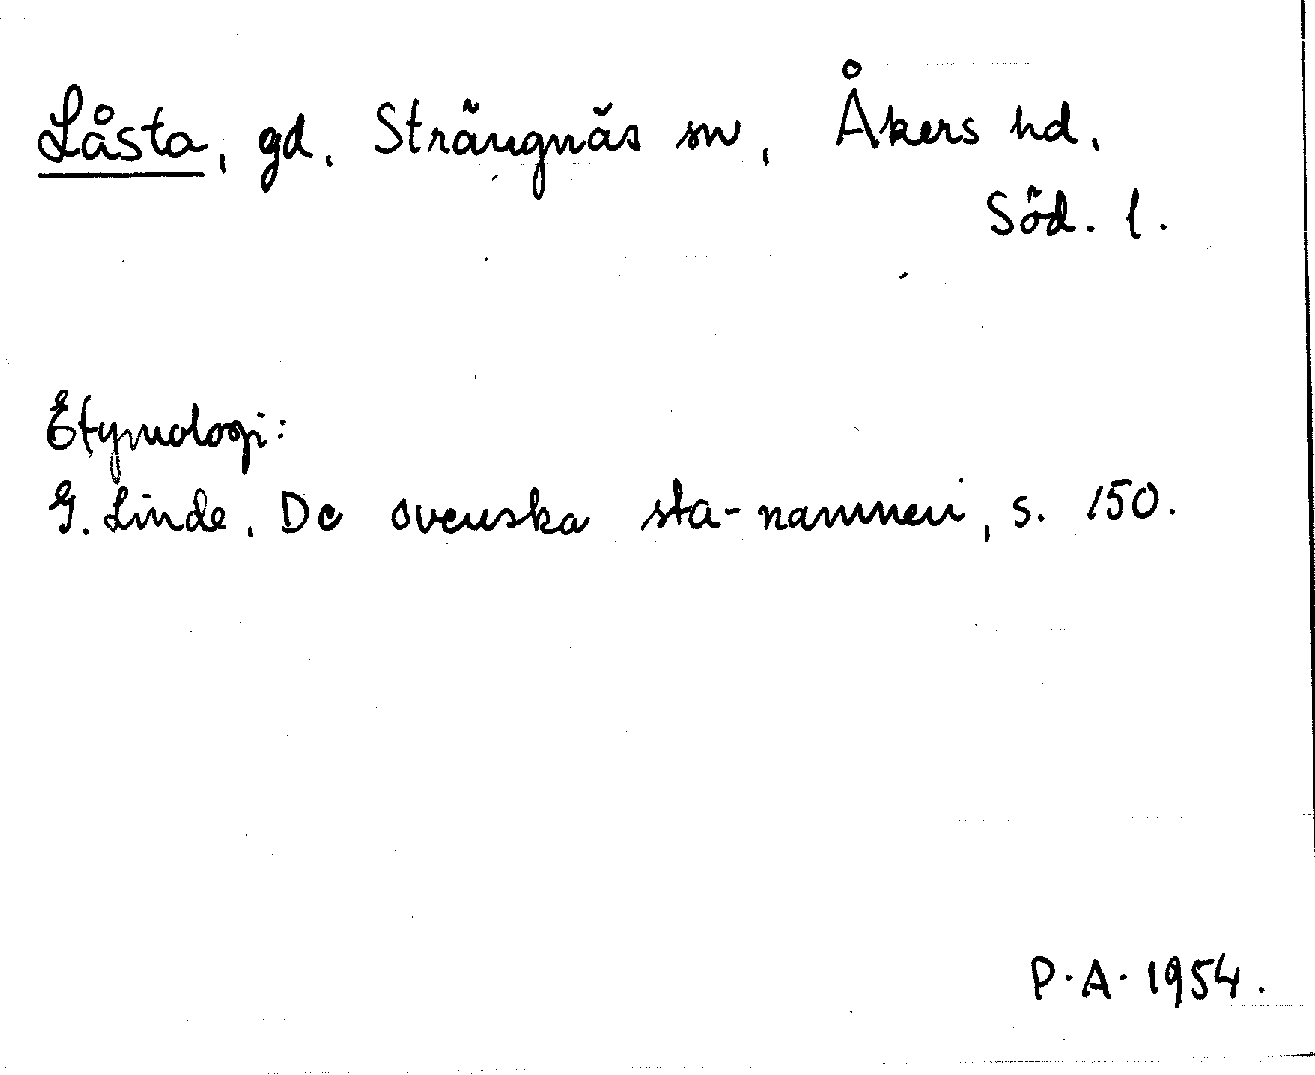 Låsta, gd, Strängnäs sn, Åkers hd,
Söd. l.
Etymologi:
G. Linde, De svenska sta-namnen, s. 150.
P.A. 1954.